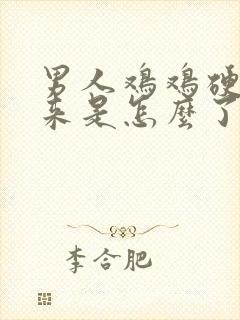 男人鸡鸡硬
来是怎麼了
李合肥